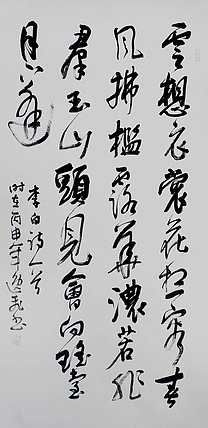 雲想衣裳花想容春
風拂檻露華濃若非
羣玉山頭見會向瑶臺
月下逢
李白诗一首
时在丙申年书